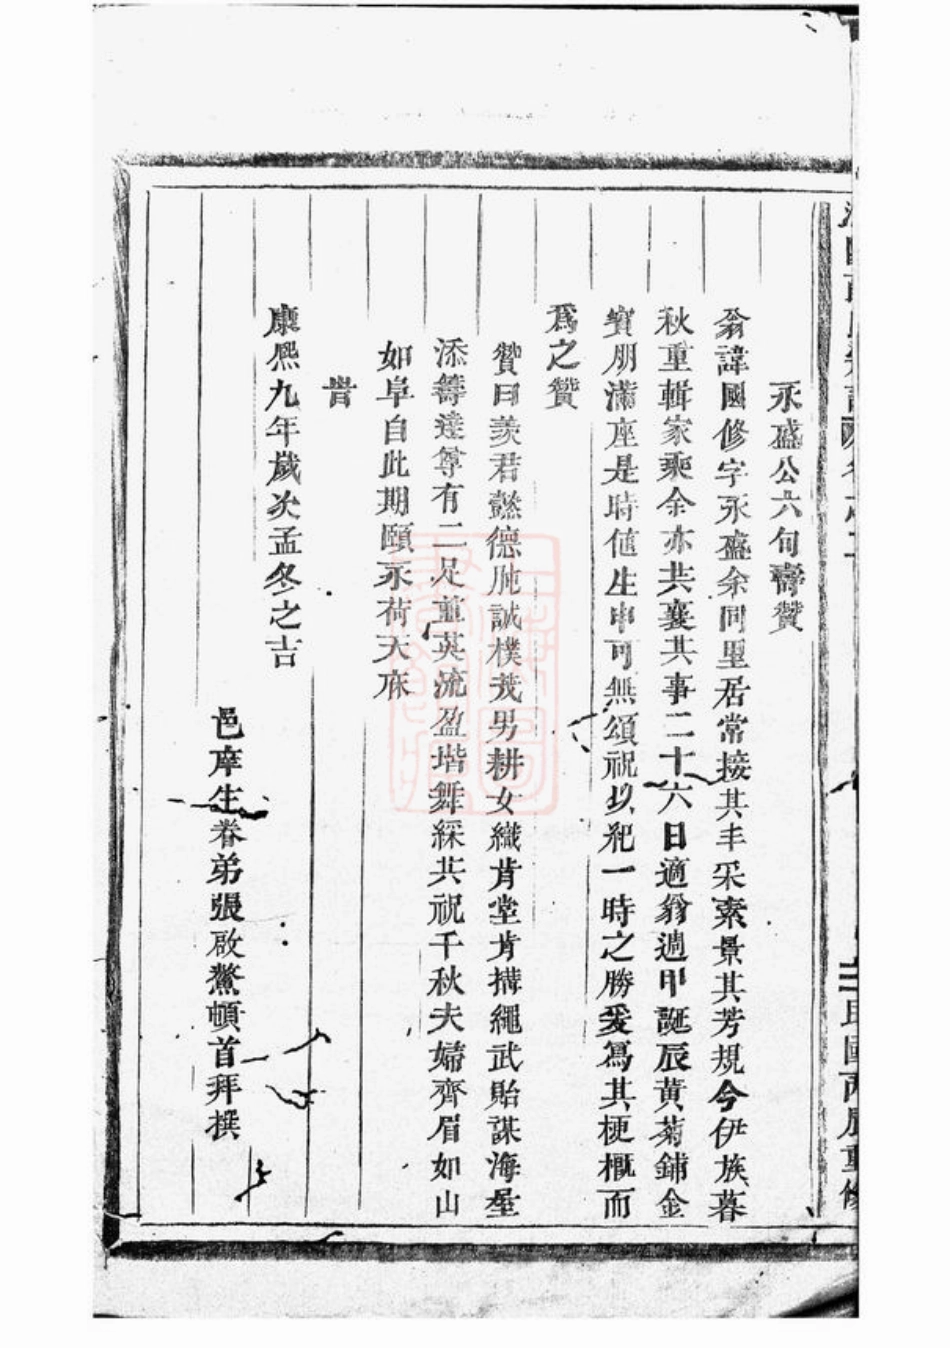 永盛公六旬壽贊
翁諱國修字永盛余同里居常接其丰采素景其芳規今伊族暮
秋重輯家乘余亦共襄其事二十六日適翁週甲誕辰黄菊鋪金
賓朋滿座是時值生申可無頌祝以紀一時之勝爰爲其梗概而
爲之贊
贊曰羡君懿德肫誠樸茂男耕女織肯堂肯搆繩武貽謀海屋
添籌達尊有二足並英流盈堦舞綵共祝千秋夫婦齊眉如山
如阜自此期頤永荷天庥
旹
康熙九年歲次孟冬之吉
邑庠生眷弟張啟鰲頓首拜撰
民國丙辰重修